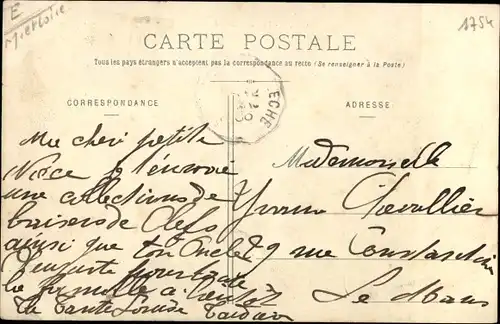 E
1754
CARTE POSTALE
Tous les pays étrangers n'acceptent pas la correspondance au recto (Se renseigner à la Poste)
ECHE
CORRESPONDANCE
ADRESSE
Ma cher petite
Nièce je t'envoie
une collections de
baisers de Clefs
ainsi que ton Oncle
toute
la famille a bientôt
Ta Tante Louise Tardier
Mademoiselle
Yvonne Chevallier
29 rue Constantine
Le Mans